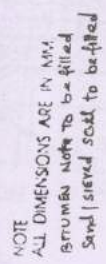 NOTE
ALL DIMENSIONS ARE IN MM
BITUMEN NOTE TO be filled
Sand / SIEVED SOIL to be filled